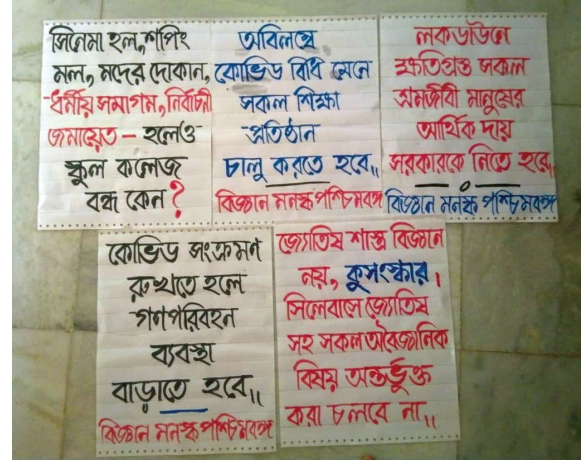 সিনেমা হল, শপিং
মল, মদের দোকান,
ধর্মীয় সমাগম, নির্বাচনী
জমায়েত - হলেও
স্কুল কলেজ
বন্ধ কেন?
অবিলম্বে
কোভিড বিধি মেনে
সকল শিক্ষা
প্রতিষ্ঠান
চালু করতে হবে৷৷
বিজ্ঞান মনস্ক পশ্চিমবঙ্গ
লকডাউনে
ক্ষতিগ্রস্ত সকল
শ্রমজীবী মানুষের
আর্থিক দায়
সরকারকে নিতে হবে৷৷
বিজ্ঞান মনস্ক পশ্চিমবঙ্গ
কোভিড সংক্রমন
রুখতে হলে
গণপরিবহন
ব্যবস্থা
বাড়াতে হবে৷৷
বিজ্ঞান মনস্ক পশ্চিমবঙ্গ
জ্যোতিষ শাস্ত্র বিজ্ঞান
নয়, কুসংস্কার।
সিলেবাসে জ্যোতিষ
সহ সকল অবৈজ্ঞানিক
বিষয় অন্তর্ভুক্ত
করা চলবে না৷৷